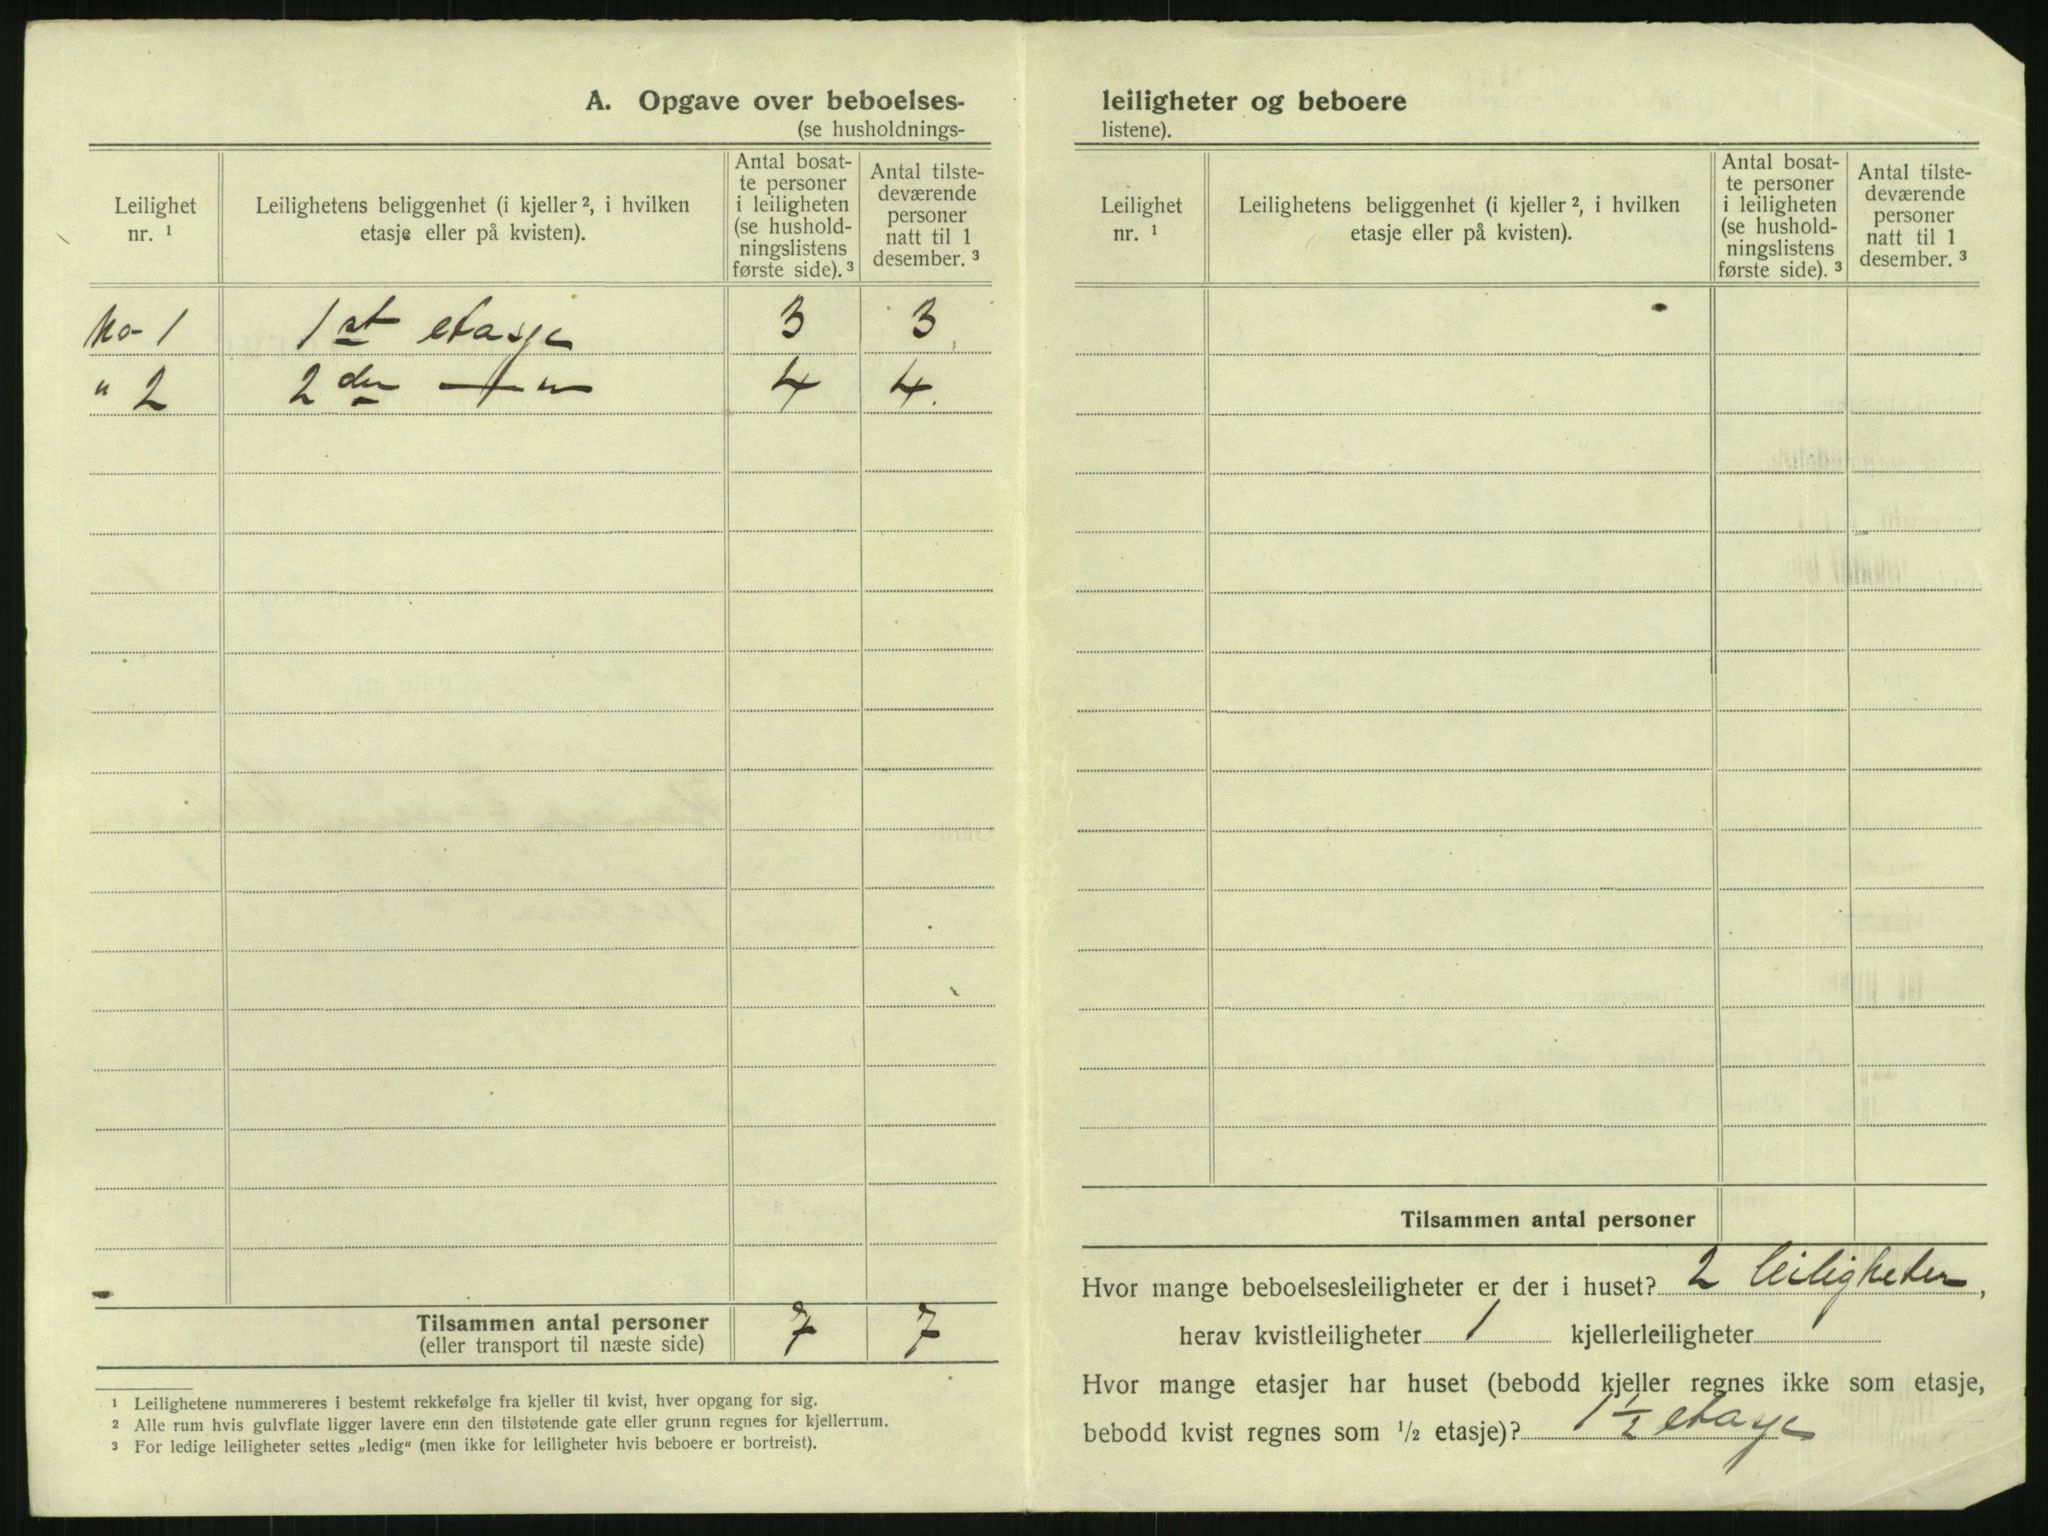 A. Opgave over beboelses-
(se husholdnings-
Leilighet
nr. ¹
Leilighetens beliggenhet (i kjeller ², i hvilken
etasje eller på kvisten).
Antal bosat-
te personer
i leiligheten
(se hushold-
ningslistens
første side). ³
Antal tilste-
deværende
personer
natt til 1
desember. ³
No 1 1st etasje 3 3
" 2 2den — " — 4 4.
Tilsammen antal personer 7 7
(eller transport til næste side)
¹ Leilighetene nummereres i bestemt rekkefølge fra kjeller til kvist, hver opgang for sig.
² Alle rum hvis gulvflate ligger lavere enn den tilstøtende gate eller grunn regnes for kjellerrum.
³ For ledige leiligheter settes „ledig“ (men ikke for leiligheter hvis beboere er bortreist).
leiligheter og beboere
listene).
Leilighet
nr. ¹
Leilighetens beliggenhet (i kjeller ², i hvilken
etasje eller på kvisten).
Antal bosat-
te personer
i leiligheten
(se hushold-
ningslistens
første side). ³
Antal tilste-
deværende
personer
natt til 1
desember. ³
Tilsammen antal personer
Hvor mange beboelsesleiligheter er der i huset? 2 leiligheter,
herav kvistleiligheter 1 kjellerleiligheter
Hvor mange etasjer har huset (bebodd kjeller regnes ikke som etasje,
bebodd kvist regnes som ½ etasje)? 1 ½ etasje